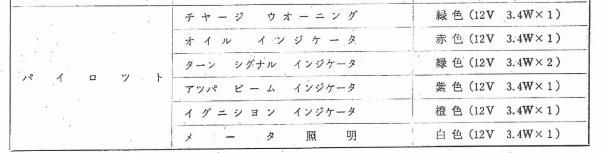 チヤージ ウオーニング 緑色 (12V 3.4W×1)
オイル インジケータ 赤色 (12V 3.4W×1)
パイロツト ターン シグナル インジケータ 緑色 (12V 3.4W×2)
アツパ ビーム インジケータ 紫色 (12V 3.4W×1)
イグニシヨン インジケータ 橙色 (12V 3.4W×1)
メータ照明 白色 (12V 3.4W×1)